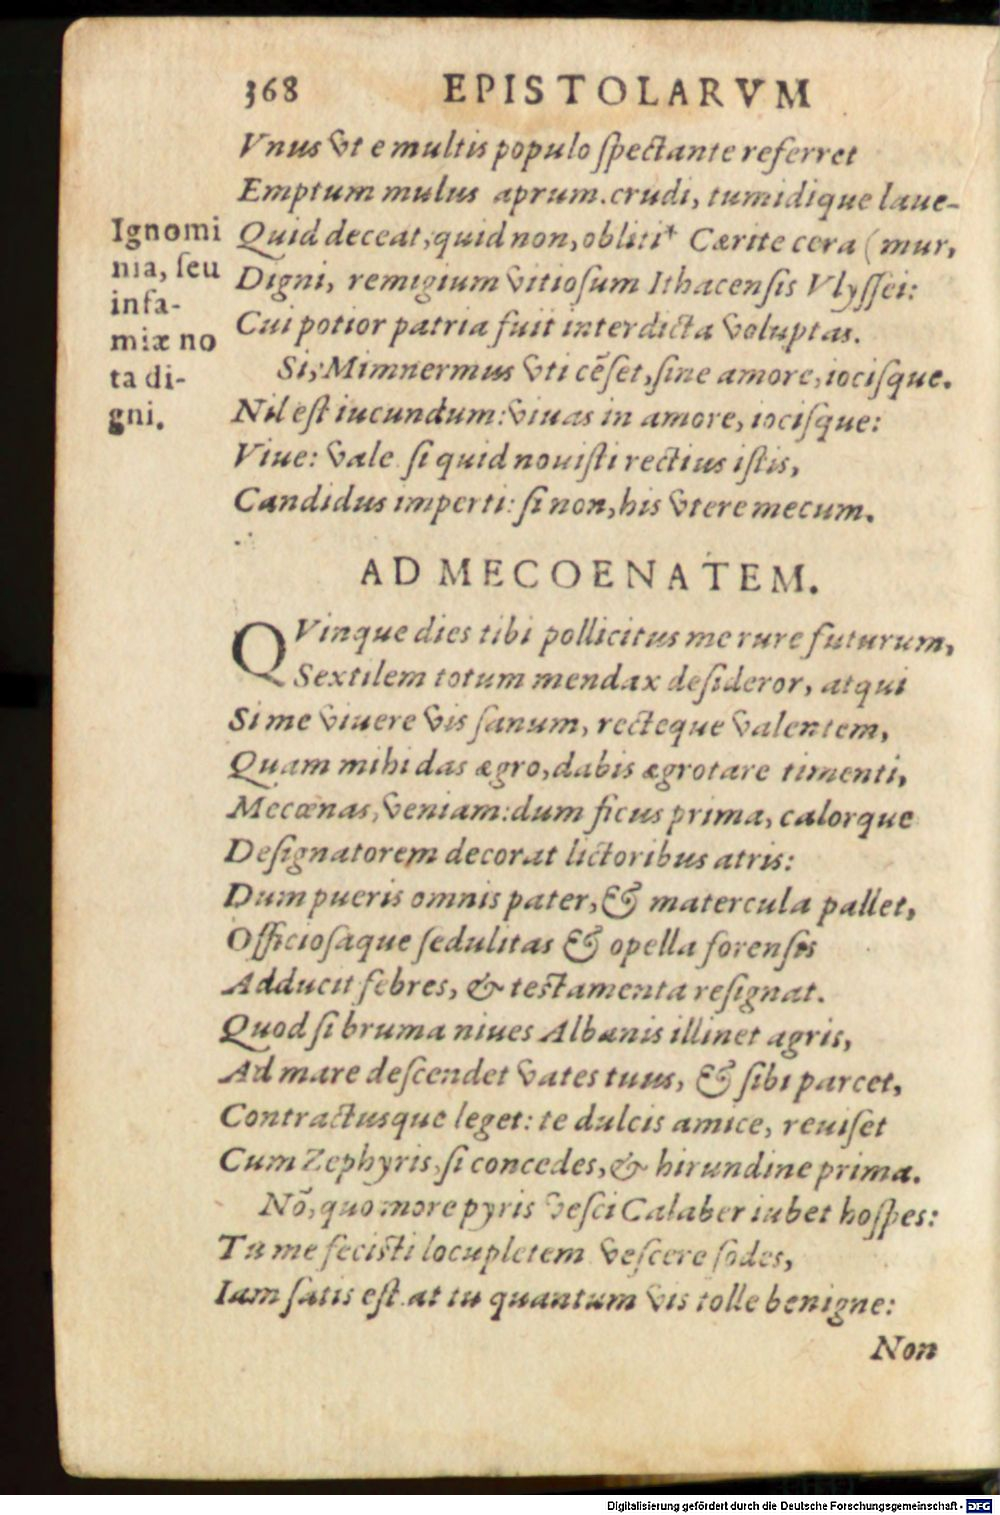 368 EPISTOLARVM
Vnus vt e multis populo ſpectante referret
Emptum mulus aprum. crudi, tumidique laue-
Quid deceat, quid non, obliti† Cærite cera (mur,
Digni, remigium vitioſum Ithacenſis Vlyſſei:
Cui potior patria fuit interdicta voluptas.
Si, Mimnermus vti cēſet, ſine amore, iociſque.
Nil eſt iucundum: viuas in amore, iociſque:
Viue: vale ſi quid nouiſti rectius iſtis,
Candidus imperti: ſi non, his vtere mecum.
Ignomi
nia, ſeu
infa-
miæ no
ta di-
gni.
AD MECOENATEM.
QVinque dies tibi pollicitus me rure futurum,
Sextilem totum mendax deſideror, atqui
Si me viuere vis ſanum, recteque valentem,
Quam mihi das ægro, dabis ægrotare timenti,
Mecœnas, veniam: dum ficus prima, calorque
Deſignatorem decorat lictoribus atris:
Dum pueris omnis pater, & matercula pallet,
Officioſaque ſedulitas & opella forenſis
Adducit febres, & teſtamenta reſignat.
Quod ſi bruma niues Albanis illinet agris,
Ad mare deſcendet vates tuus, & ſibi parcet,
Contractusque leget: te dulcis amice, reuiſet
Cum Zephyris, ſi concedes, & hirundine prima.
Nō, quo more pyris veſci Calaber iubet hoſpes:
Tu me feciſti locupletem veſcere ſodes,
Iam ſatis eſt. at tu quantum vis tolle benigne:
Non
Digitalisierung gefördert durch die Deutsche Forschungsgemeinschaft - DFG